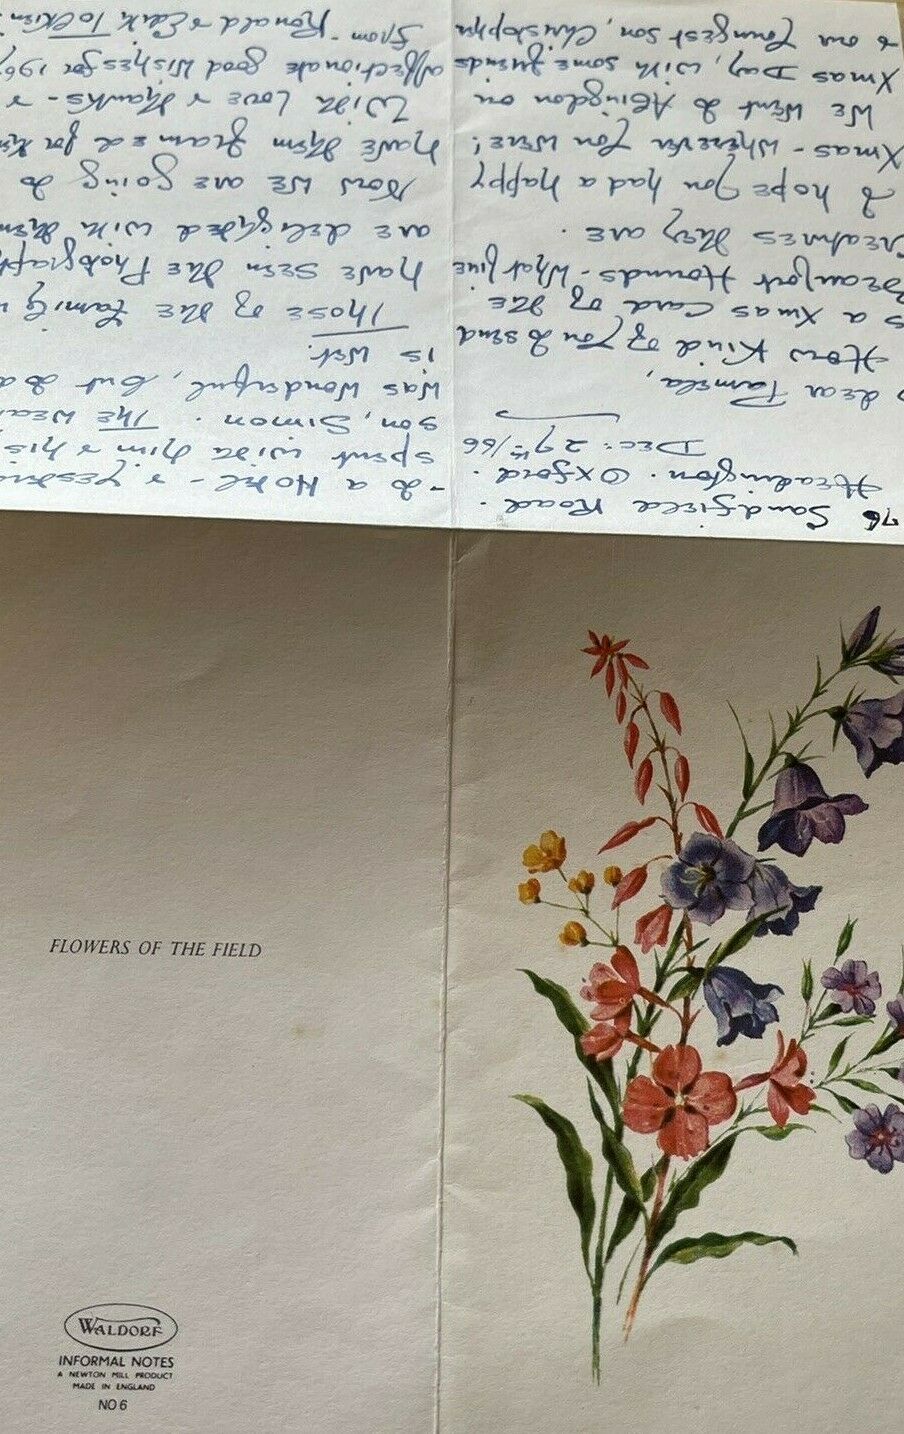 76 Sandfield Road.
Headington. Oxford.
Dec: 29th/66
dear Pamela,
How Kind of you to send
us a Xmas Card of the
Beaufort Hounds - What fine
creatures they are.
I hope you had a happy
Xmas - Wherever you were!
We Went to Abingdon on
Xmas Day, with some friends
& our youngest son, Christopher
- to a Hotel - & yesterday
spent with him & his
son, Simon. The wea
was wonderful, but to
is Wet.
Those of the Family
have seen the Photograph
are delighted with them
Now We are going to
have them framed for
With Love & thanks - &
affectionate good wishes for 1967
from - Ronald & Edith Tolkien.
FLOWERS OF THE FIELD
WALDORF
INFORMAL NOTES
A NEWTON MILL PRODUCT
MADE IN ENGLAND
NO 6